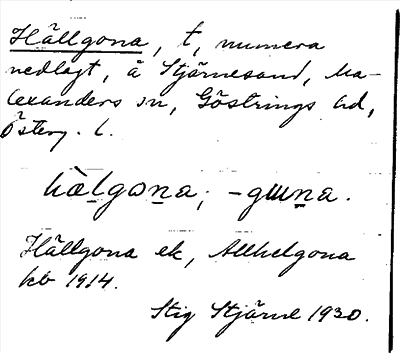 Hällgona, t, numera
nedlagt, å Stjärnesand, Ma-
lexanders sn, Göstrings hd,
Österg. l.
hàlgωna; -gɯna.
Hällgona ek, Allhelgona
kb 1914.
Stig Stjärne 1930.